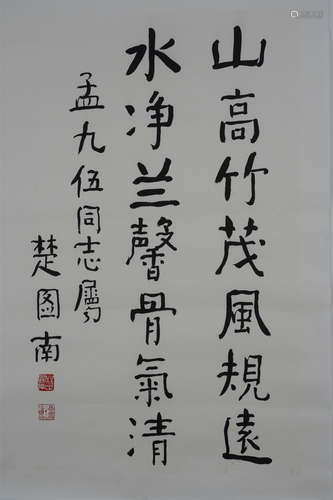 山高竹茂風規遠
水净兰馨骨氣清
孟九伍同志属
楚图南